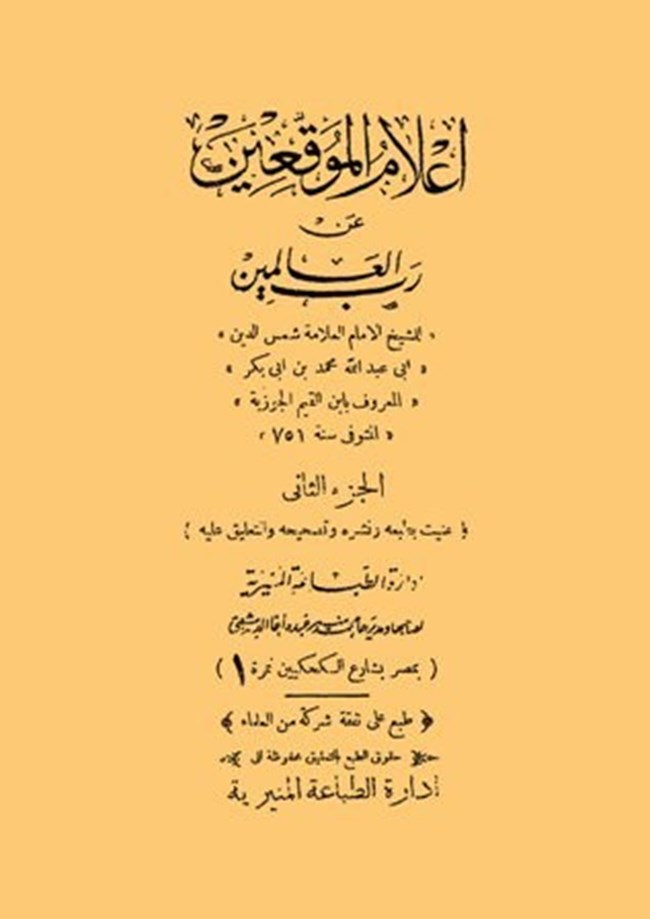 اعْلامُ المُوَقَّعِيْن
عَنْ
رَبِّ العَالَمِيْن
« للشيخ الامام العلامة شمس الدين »
« ابى عبد الله محمد بن ابى بكر »
« المعروف بابن القيم الجوزية »
« المتوفى سنة ٧٥١ »
الجزء الثانى
﴿ عنيت بطبعه ونشره وتصحيحه والتعليق عليه ﴾
ادارة الطباعة المنيرية
لصاحبها ومديرها محمد منير عبده أغا الدمشقي
( بمصر بشارع الكحكيين نمرة ١ )
﴿ طبع على نفقة شركة من العلماء ﴾
حقوق الطبع بالتعليق محفوظة الى
ادارة الطباعة المنيرية